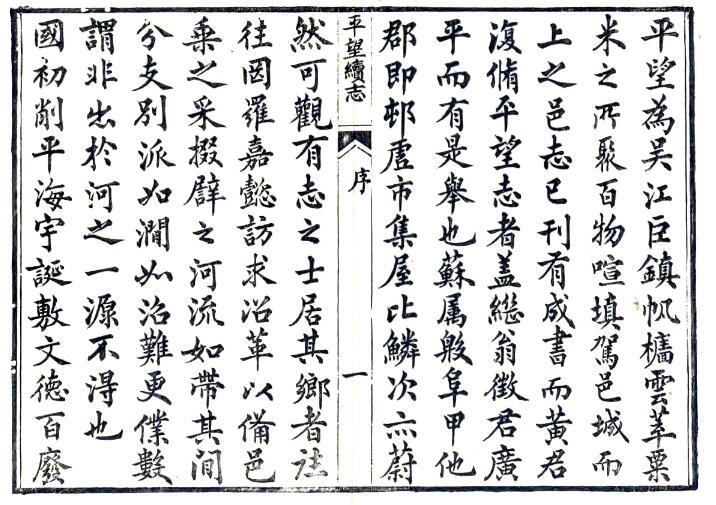 平望為吳江巨鎮帆檣雲萃粟
米之所聚百物喧填駕邑城而
上之邑志已刊有成書而黃君
復脩平望志者蓋繼翁徵君廣
平而有是舉也蘇属殷阜甲他
郡即邨墟市集屋比鱗次亦蔚
平望續志
序
一
然可觀有志之士居其鄉者往
往罔羅嘉懿訪求沿革以備邑
乘之采掇譬之河流如帶其間
分支別派如澗如沼難更僕數
謂非出於河之一源不得也
國初削平海宇誕敷文德百廢